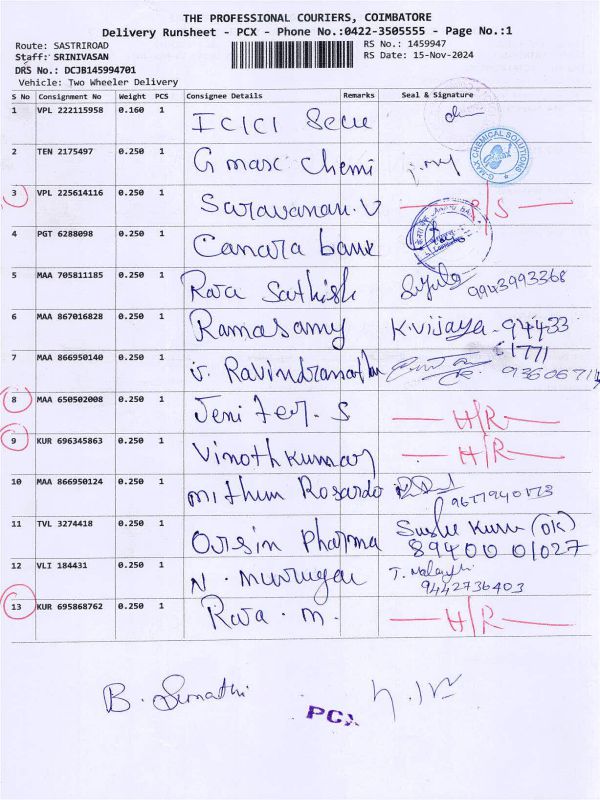 THE PROFESSIONAL COURIERS, COIMBATORE
Delivery Runsheet - PCX - Phone No.:0422-3505555 - Page No.:1
Route: SASTRIROAD RS No.: 1459947
Staff: SRINIVASAN RS Date: 15-Nov-2024
DRS No.: DCJB145994701
Vehicle: Two Wheeler Delivery
S No Consignment No Weight PCS Consignee Details Remarks Seal & Signature
1 VPL 222115958 0.160 1 ICICI Secu
2 TEN 2175497 0.250 1 G max Chemi G-MAX CHEMICAL SOLUTIONS
3 VPL 225614116 0.250 1 Saravanan.V O/S
4 PGT 6288098 0.250 1 Canara bank
5 MAA 705811185 0.250 1 Rara Sathish 9943993368
6 MAA 867016828 0.250 1 Ramasamy K.Vijaya - 94433
1771
7 MAA 866950140 0.250 1 V. Ravindranathan
8 MAA 650502008 0.250 1 Jenifer. S H/R
9 KUR 696345863 0.250 1 Vinothkumar H/R
10 MAA 866950124 0.250 1 Mithun Rosardo 9677940173
11 TVL 3274418 0.250 1 Orsin Pharma (OK)
89400 01027
12 VLI 184431 0.250 1 N. Murugan
9442736403
13 KUR 695868762 0.250 1 Rara. M. H/R
B. Sumathi
PCX